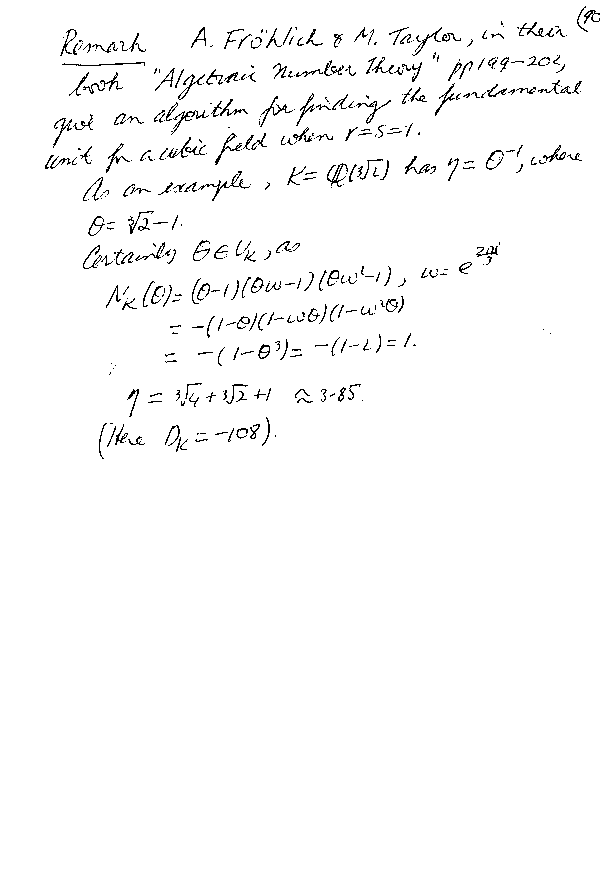 (90
Remark A. Fröhlich & M. Taylor, in their
book "Algebraic Number Theory" pp 199-202,
give an algorithm for finding the fundamental
unit for a cubic field when r=s=1.
As an example, K= ℚ(∛2) has η = θ⁻¹, where
θ= ∛2-1.
Certainly θ∈U_K, as
N_K(θ)= (θ-1)(θω-1)(θω²-1), ω= e^{2πi/3}
= -(1-θ)(1-ωθ)(1-ω²θ)
= -(1-θ³)= -(1-2)=1.
η = ∛4+∛2+1 ≈ 3·85.
(Here D_K = -108).